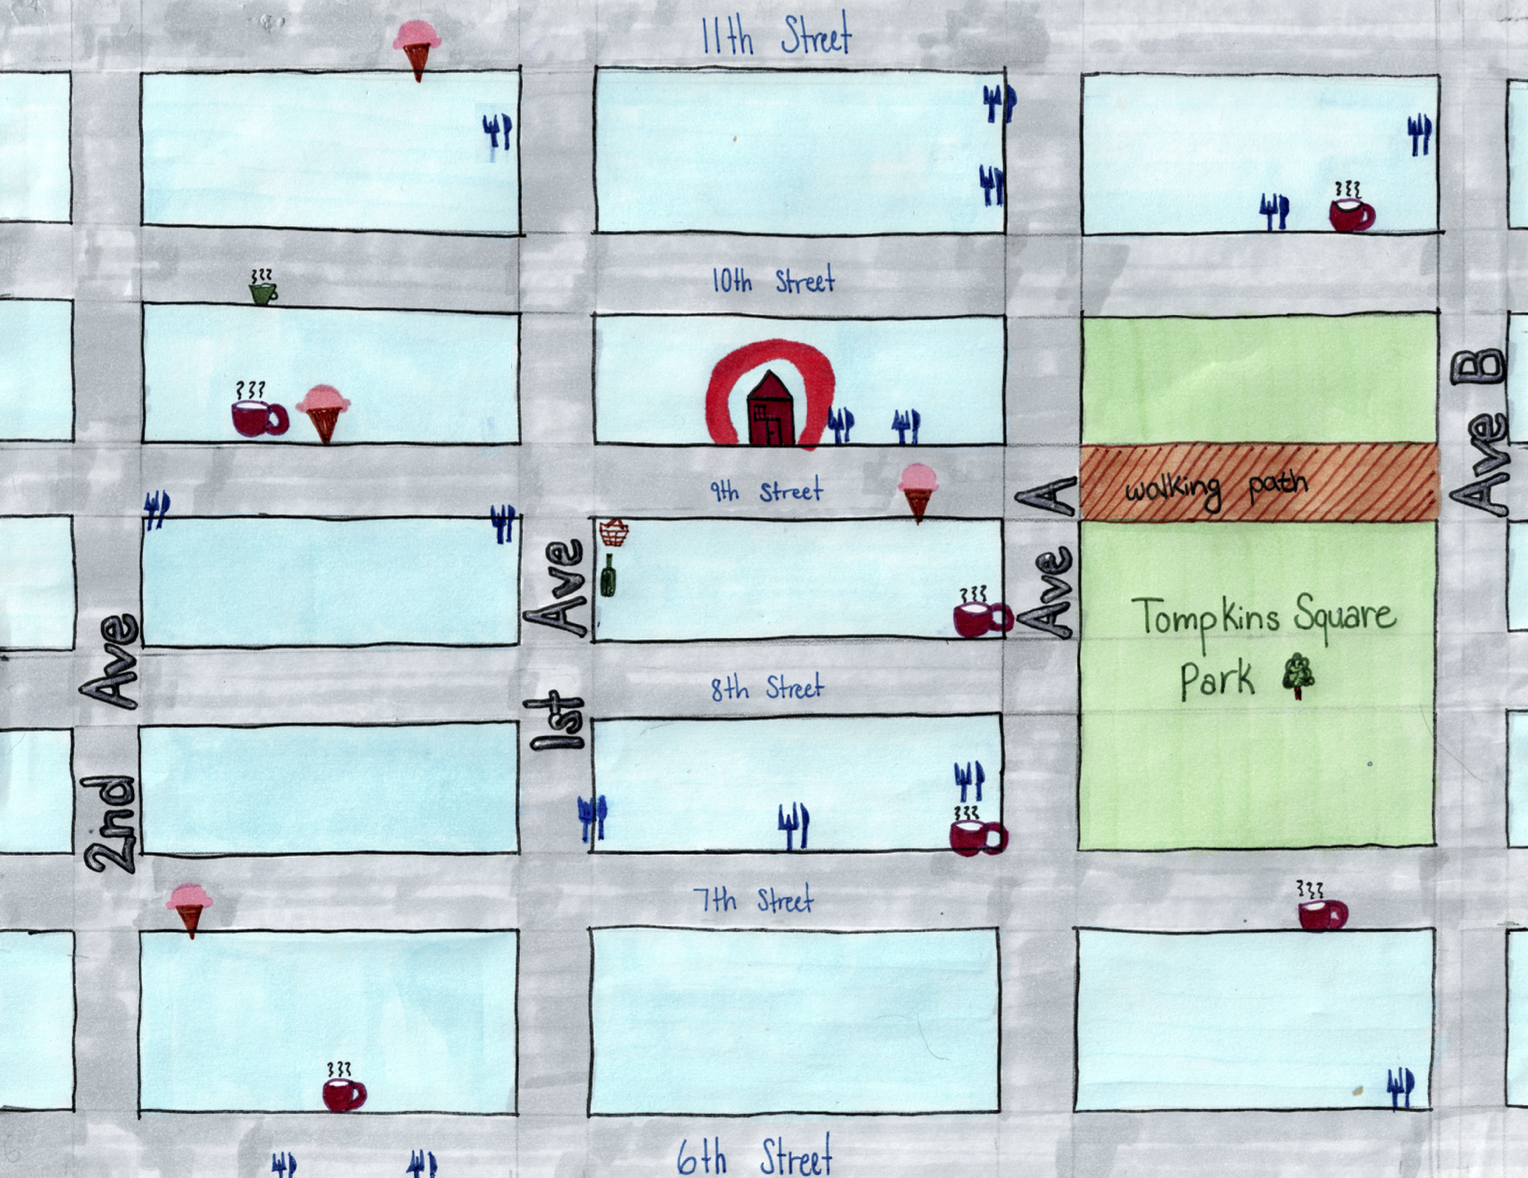 11th Street
10th Street
Ave B
9th Street
walking path
Ave A
1st Ave
2nd Ave
Tompkins Square
Park
8th Street
7th Street
6th Street